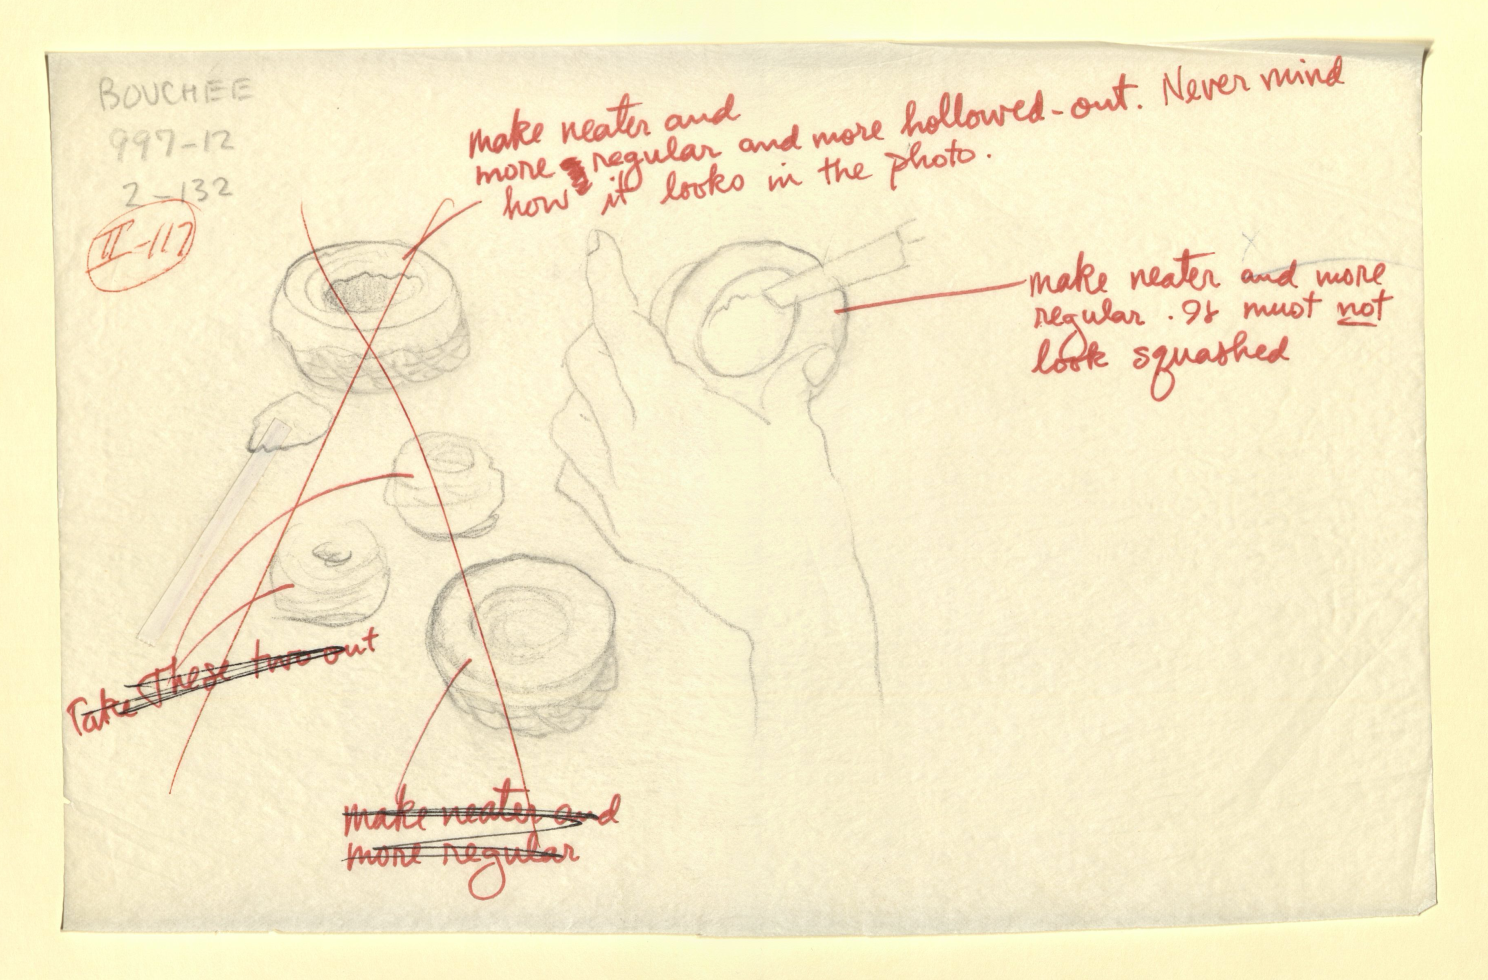 BOUCHÉE
997-12
2-132
II-117
make neater and
more regular and more hollowed-out. Never mind
how it looks in the photo.
make neater and more
regular. It must not
look squashed
Take these two out
make neater and
more regular